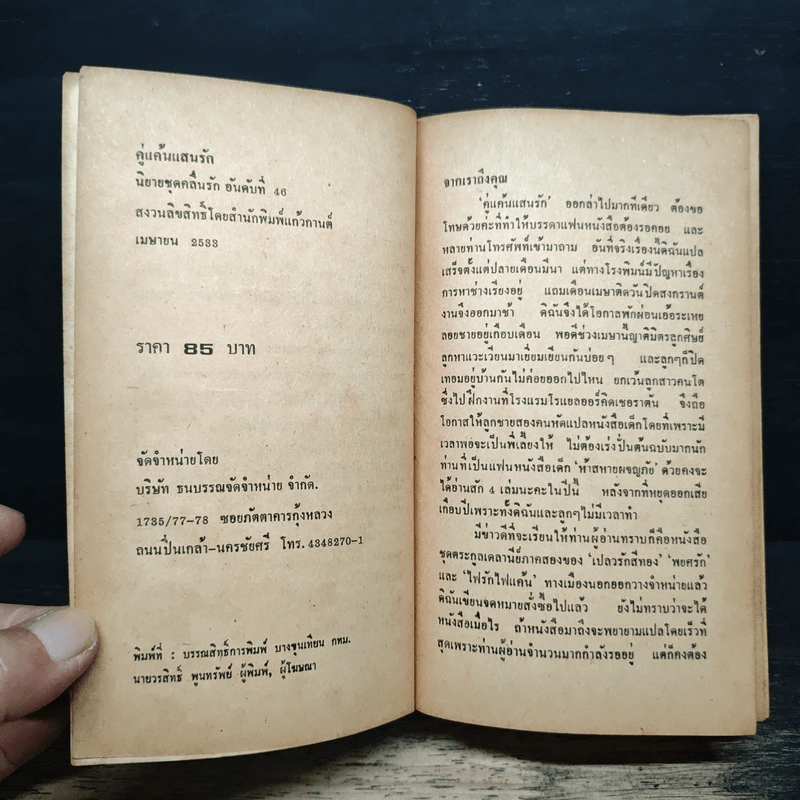 คู่แค้นแสนรัก
นิยายชุดคลื่นรัก อันดับที่ 46
สงวนลิขสิทธิ์โดยสำนักพิมพ์แก้วกานต์
เมษายน 2533
ราคา 85 บาท
จัดจำหน่ายโดย
บริษัท ธนบรรณจัดจำหน่าย จำกัด.
1735/77-78 ซอยภัตตาคารกุ้งหลวง
ถนนปิ่นเกล้า-นครชัยศรี โทร. 4348270-1
พิมพ์ที่ : บรรณสิทธิ์การพิมพ์ บางขุนเทียน กทม.
นายวรสิทธิ์ พูนทรัพย์ ผู้พิมพ์, ผู้โฆษณา
จากเราถึงคุณ
'คู่แค้นแสนรัก' ออกล่าไปมากทีเดียว ต้องขอ
โทษด้วยค่ะที่ทำให้บรรดาแฟนหนังสือต้องรอคอย และ
หลายท่านโทรศัพท์เข้ามาถาม อันที่จริงเรื่องนี้ดิฉันแปล
เสร็จตั้งแต่ปลายเดือนมีนา แต่ทางโรงพิมพ์มีปัญหาเรื่อง
การหาช่างเรียงอยู่ แถมเดือนเมษาติดวันปิดสงกรานต์
งานจึงออกมาช้า ดิฉันจึงได้โอกาสพักผ่อนเอ้อระเหย
ลอยชายอยู่เกือบเดือน พอดีช่วงเมษานี้ญาติมิตรลูกศิษย์
ลูกหาแวะเวียนมาเยี่ยมเยียนกันบ่อยๆ และลูกๆก็ปิด
เทอมอยู่บ้านกันไม่ค่อยออกไปไหน ยกเว้นลูกสาวคนโต
ซึ่งไปฝึกงานที่โรงแรมโรแยลออร์คิดเชอราตัน จึงถือ
โอกาสให้ลูกชายสองคนหัดแปลหนังสือเด็กโดยที่เพราะมี
เวลาพอจะเป็นพี่เลี้ยงให้ ไม่ต้องเร่งปั่นต้นฉบับมากนัก
ท่านที่เป็นแฟนหนังสือเด็ก 'ห้าสหายผจญภัย' ด้วยคงจะ
ได้อ่านสัก 4 เล่มนะคะในปีนี้ หลังจากที่หยุดออกเสีย
เกือบปีเพราะทั้งดิฉันและลูกๆไม่มีเวลาทำ
มีข่าวดีที่จะเรียนให้ท่านผู้อ่านทราบก็คือหนังสือ
ชุดตระกูลเดลานีย์ภาคสองของ 'เปลวรักสีทอง' 'พยศรัก'
และ 'ไฟรักไฟแค้น' ทางเมืองนอกออกวางจำหน่ายแล้ว
ดิฉันเขียนจดหมายสั่งซื้อไปแล้ว ยังไม่ทราบว่าจะได้
หนังสือเมื่อไร ถ้าหนังสือมาถึงจะพยายามแปลโดยเร็วที่
สุดเพราะท่านผู้อ่านจำนวนมากกำลังรออยู่ แต่ก็คงต้อง